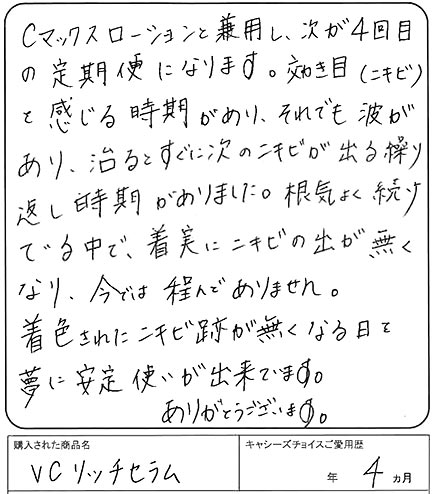 Cマックスローションと兼用し、次が4回目
の定期便になります。効き目(ニキビ)
と感じる時期があり、それでも波が
あり、治るとすぐに次のニキビが出る繰り
返し時期がありました。根気よく続け
ている中で、着実にニキビの出が無く
なり、今では程んでありません。
着色されたニキビ跡が無くなる日を
夢に安定使いが出来ています。
ありがとうございます。
購入された商品名
キャシーズチョイスご愛用歴
VCリッチセラム
年 4 ヵ月